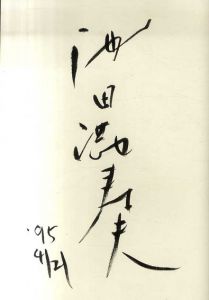 池田満寿夫
'95
4/21